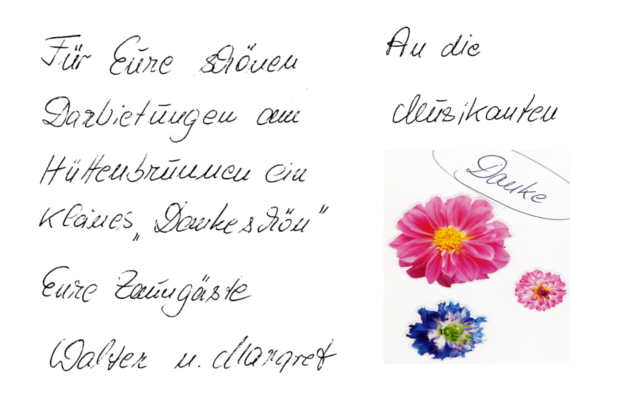 Für Eure schönen
Darbietungen am
Hüttenbrunnen ein
kleines „Dankeschön"
Eure Zaungäste
Walter u. Margret
An die
Musikanten
Danke